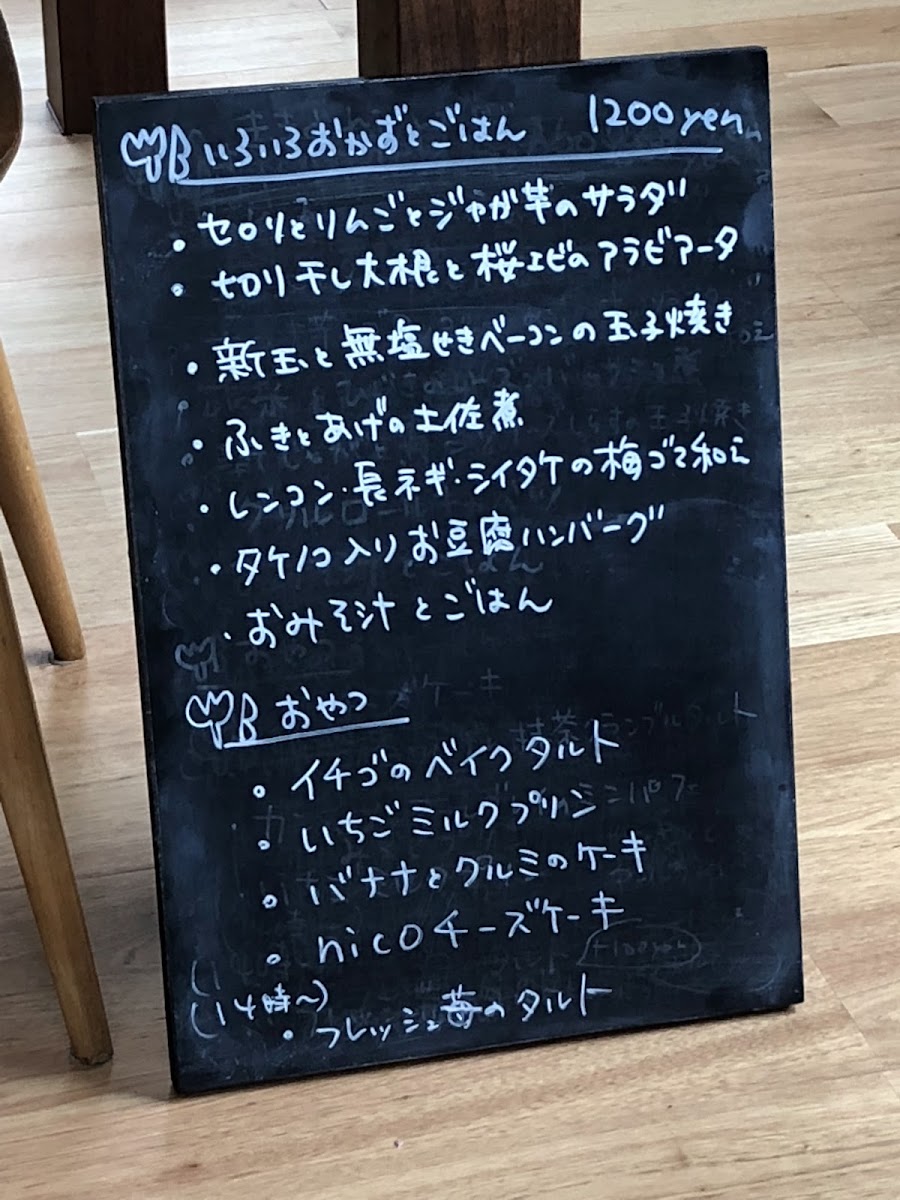 いろいろおかずとごはん 1200yen
・セロリとりんごとジャガ芋のサラダ
・切り干し大根と桜エビのアラビアータ
・新玉と無塩せきベーコンの玉子焼き
・ふきとあげの土佐煮
・レンコン・長ネギ・シイタケの梅ゴマ和え
・タケノコ入りお豆腐ハンバーグ
・おみそ汁とごはん
おやつ
・イチゴのベイクタルト
・いちごミルクプリン
・バナナとクルミのケーキ
・nicoチーズケーキ
(14時~)
・フレッシュ苺のタルト